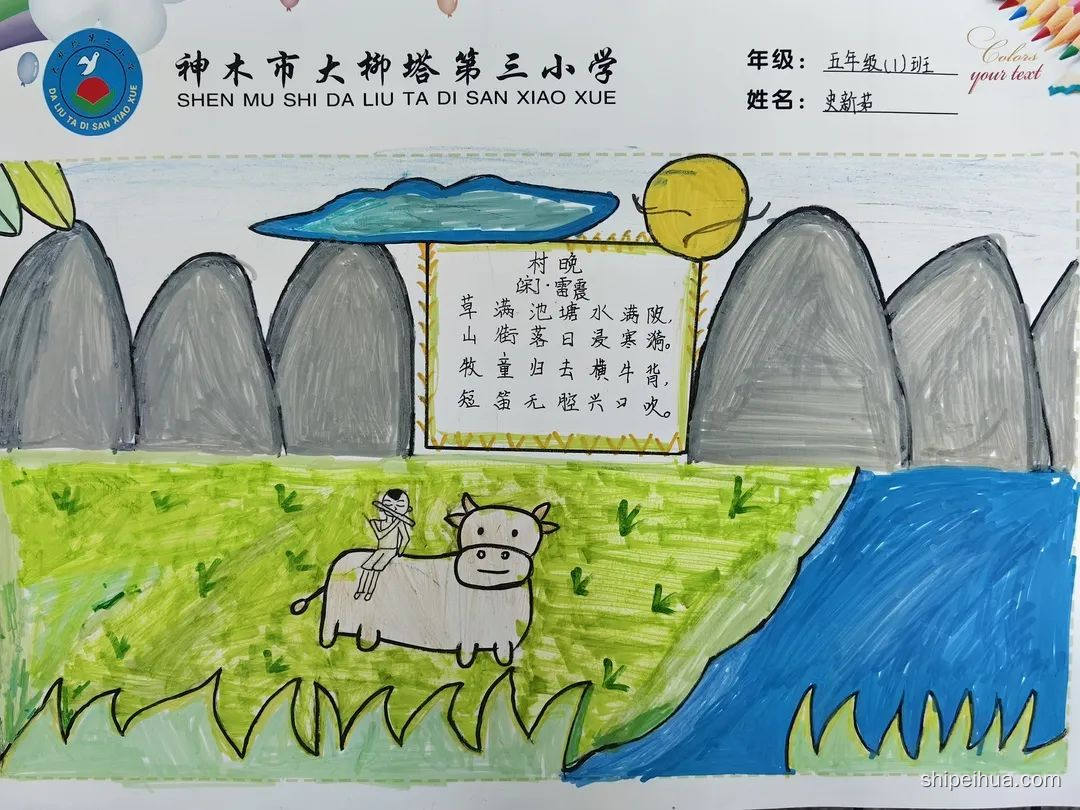 神木市大柳塔第三小学
SHEN MU SHI DA LIU TA DI SAN XIAO XUE
DA LIU TA DI SAN XIAO XUE
年级：五年级(1)班
姓名：史新茹
Colors
your text
村晚
宋·雷震
草满池塘水满陂，
山衔落日浸寒漪。
牧童归去横牛背，
短笛无腔兴口吹。
shipeihua.com